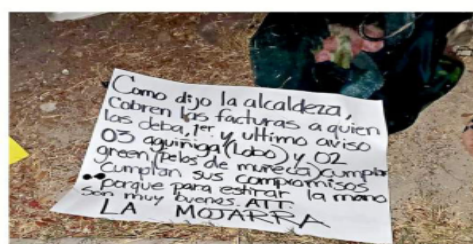 Como dijo la alcaldeza,
Cobren las facturas a quien
las deba, 1er. y ultimo aviso
03 aguiñiga (Lobo) y 02
green (pelos de muñeca) cumplan
Cumplan sus compromisos
porque para estirar la mano
son muy buenos. ATT
LA MOJARRA